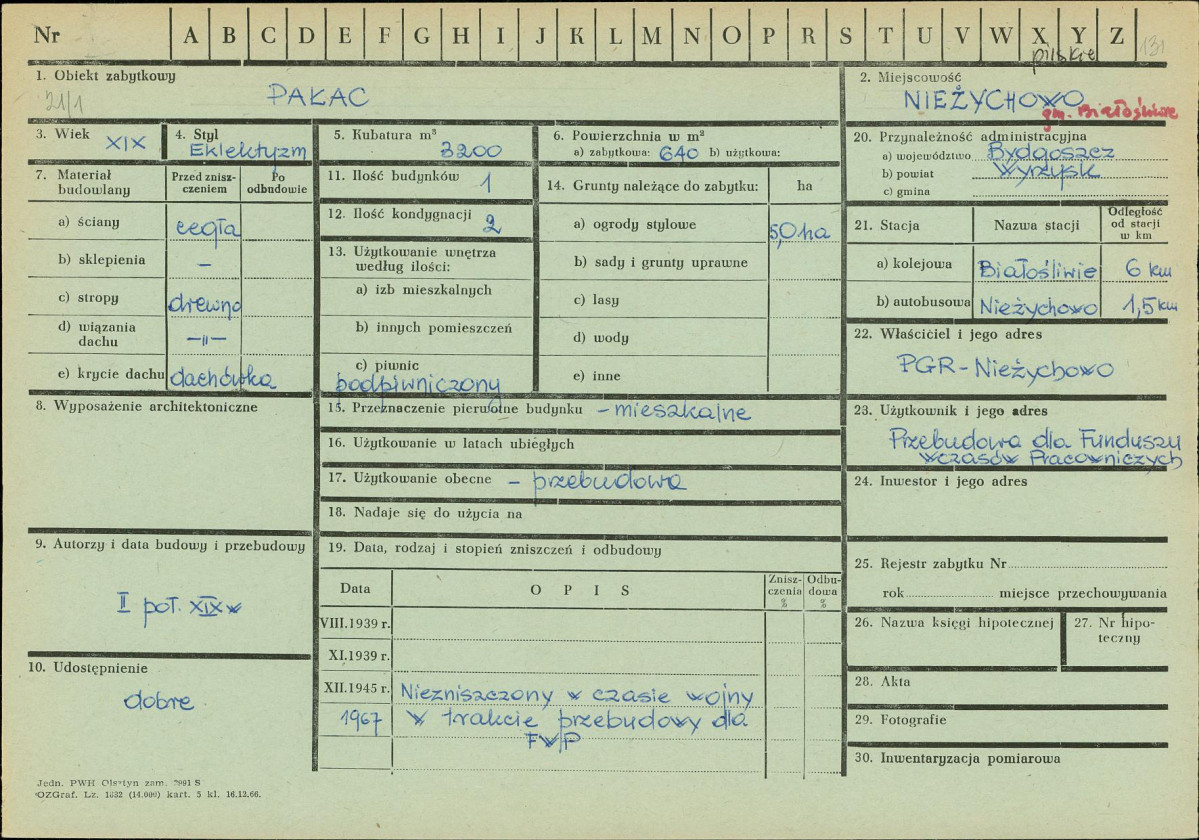 Nr A B C D E F G H I J K L M N O P R S T U V W X Y Z
pilskie 131
1. Obiekt zabytkowy
21/1
PAŁAC
2. Miejscowość
NIEŻYCHOWO
gm. Białośliwie
3. Wiek XIX
4. Styl
Eklektyzm
5. Kubatura m³
3200
6. Powierzchnia w m²
a) zabytkowa: 640 b) użytkowa:
7. Materiał budowlany
Przed znisz-
czeniem
Po
odbudowie
a) ściany cegła
b) sklepienia –
c) stropy drewno
d) wiązania
dachu –"–
e) krycie dachu dachówka
8. Wyposażenie architektoniczne
9. Autorzy i data budowy i przebudowy
II poł. XIX w
10. Udostępnienie
dobre
11. Ilość budynków 1
12. Ilość kondygnacji 2
13. Użytkowanie wnętrza
według ilości:
a) izb mieszkalnych
b) innych pomieszczeń
c) piwnic
podpiwniczony
14. Grunty należące do zabytku: ha
a) ogrody stylowe 5,0 ha
b) sady i grunty uprawne
c) lasy
d) wody
e) inne
15. Przeznaczenie pierwotne budynku – mieszkalne
16. Użytkowanie w latach ubiegłych
17. Użytkowanie obecne – przebudowa
18. Nadaje się do użycia na
19. Data, rodzaj i stopień zniszczeń i odbudowy
Data
O P I S
Znisz-
czenia
%
Odbu-
dowa
%
VIII.1939 r.
XI.1939 r.
XII.1945 r. Niezniszczony w czasie wojny
1967 w trakcie przebudowy dla
FWP
20. Przynależność administracyjna
a) województwo Bydgoszcz
b) powiat Wyrzysk
c) gmina
21. Stacja
Nazwa stacji
Odległość
od stacji
w km
a) kolejowa Białośliwie 6 km
b) autobusowa Nieżychowo 1,5 km
22. Właściciel i jego adres
PGR - Nieżychowo
23. Użytkownik i jego adres
Przebudowa dla Funduszu
Wczasów Pracowniczych
24. Inwestor i jego adres
25. Rejestr zabytku Nr
rok miejsce przechowywania
26. Nazwa księgi hipotecznej
27. Nr hipo-
teczny
28. Akta
29. Fotografie
30. Inwentaryzacja pomiarowa
Jedn. PWH Olsztyn zam. S
OZGraf. Lz. 1632 (14.000) kart. 5 kl. 16.12.66.